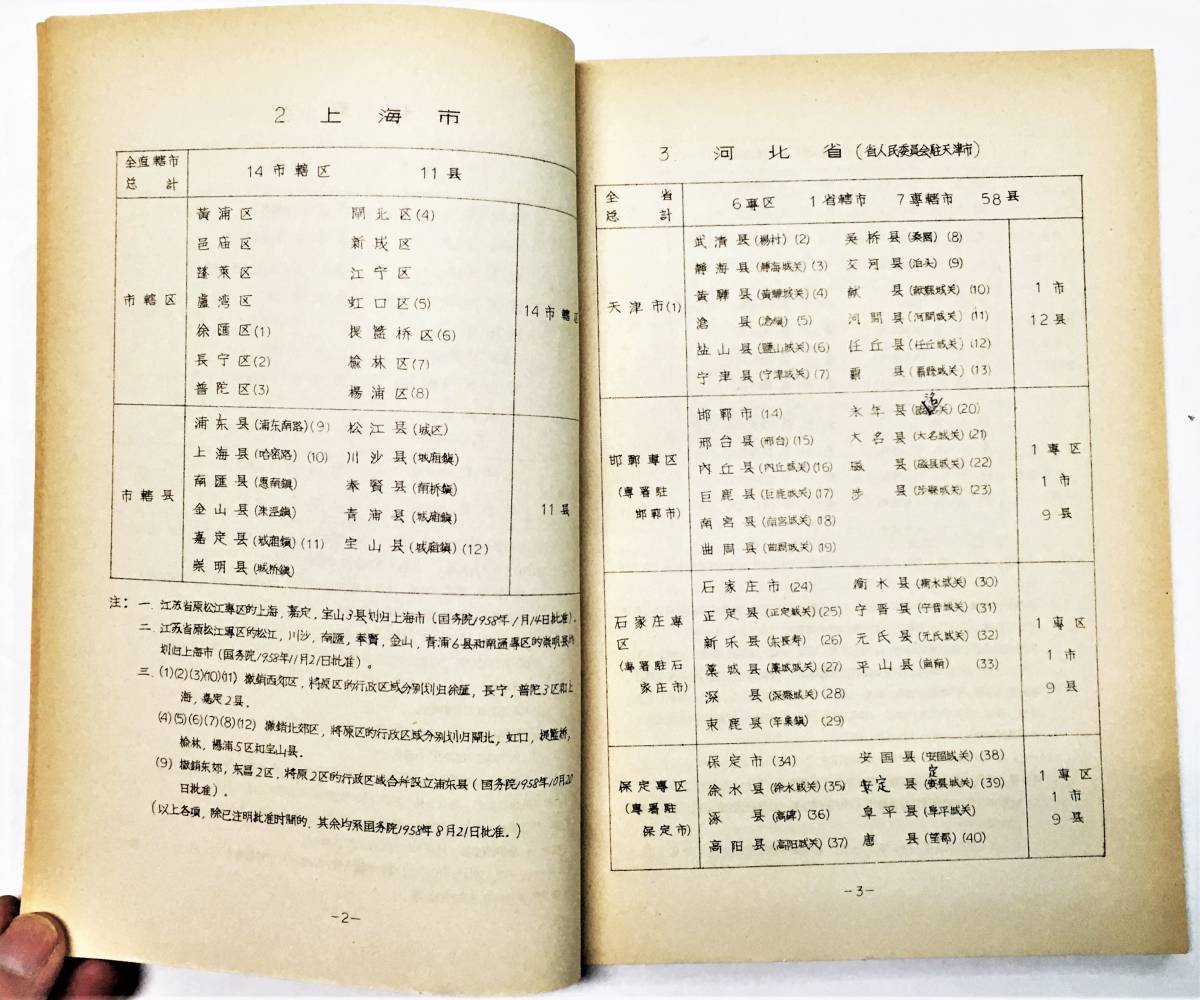 2 上海市
全直轄市总計 14市轄区 11县
市轄区 14市轄区
黃浦区 閘北区(4)
邑庙区 新成区
蓬萊区 江宁区
盧湾区 虹口区(5)
徐匯区(1) 提籃桥区(6)
長宁区(2) 榆林区(7)
普陀区(3) 楊浦区(8)
市轄县 11县
浦东县(浦东南路)(9) 松江县(城区)
上海县(哈密路)(10) 川沙县(城廂鎮)
南匯县(惠南鎮) 奉賢县(南桥鎮)
金山县(洙涇鎮) 青浦县(城廂鎮)
嘉定县(城廂鎮)(11) 宝山县(城廂鎮)(12)
崇明县(城桥鎮)
注: 一. 江苏省原松江專区的上海,嘉定,宝山3县划归上海市(国务院1958年1月14日批准).
二. 江苏省原松江專区的松江,川沙,南匯,奉賢,金山,青浦6县和南通專区的崇明县均
划归上海市(国务院1958年11月21日批准)。
三. (1)(2)(3)(10)(11) 撤銷西郊区,將原区的行政区域分別划归徐匯,長宁,普陀3区和上
海,嘉定2县.
(4)(5)(6)(7)(8)(12) 撤銷北郊区,將原区的行政区域分別划归閘北,虹口,提籃桥,
榆林,楊浦5区和宝山县.
(9) 撤銷东郊,东昌2区,將原2区的行政区域合并設立浦东县(国务院1958年10月20
日批准).
(以上各項,除已注明批准时間的.其余均系国务院1958年8月21日批准.)
-2-
3 河北省(省人民委員会駐天津市)
全省总計 6專区 1省轄市 7專轄市 58县
天津市(1) 1市 12县
武清县(楊村)(2) 吴桥县(桑園)(8)
靜海县(靜海城关)(3) 交河县(泊头)(9)
黃驊县(黃驊城关)(4) 献县(献縣城关)(10)
滄县(滄鎮)(5) 河間县(河間城关)(11)
盐山县(鹽山城关)(6) 任丘县(任丘城关)(12)
宁津县(宁津城关)(7) 霸县(霸縣城关)(13)
邯鄲專区(專署駐邯鄲市) 1專区 1市 9县
邯鄲市(14) 永年县(20)
邢台县(邢台)(15) 大名县(大名城关)(21)
內丘县(內丘城关)(16) 磁县(磁县城关)(22)
巨鹿县(巨鹿城关)(17) 涉县(涉縣城关)(23)
南宮县(南宮城关)(18)
曲周县(曲周城关)(19)
石家庄專区(專署駐石家庄市) 1專区 1市 9县
石家庄市(24) 衡水县(衡水城关)(30)
正定县(正定城关)(25) 宁晋县(宁晋城关)(31)
新乐县(东長寿)(26) 元氏县(元氏城关)(32)
藁城县(藁城城关)(27) 平山县(33)
深县(深縣城关)(28)
束鹿县(辛集鎮)(29)
保定專区(專署駐保定市) 1專区 1市 9县
保定市(34) 安国县(安国城关)(38)
徐水县(徐水城关)(35) 安定县(安定城关)(39)
涿县(高碑)(36) 阜平县(阜平城关)
高阳县(高阳城关)(37) 唐县(望都)(40)
-3-